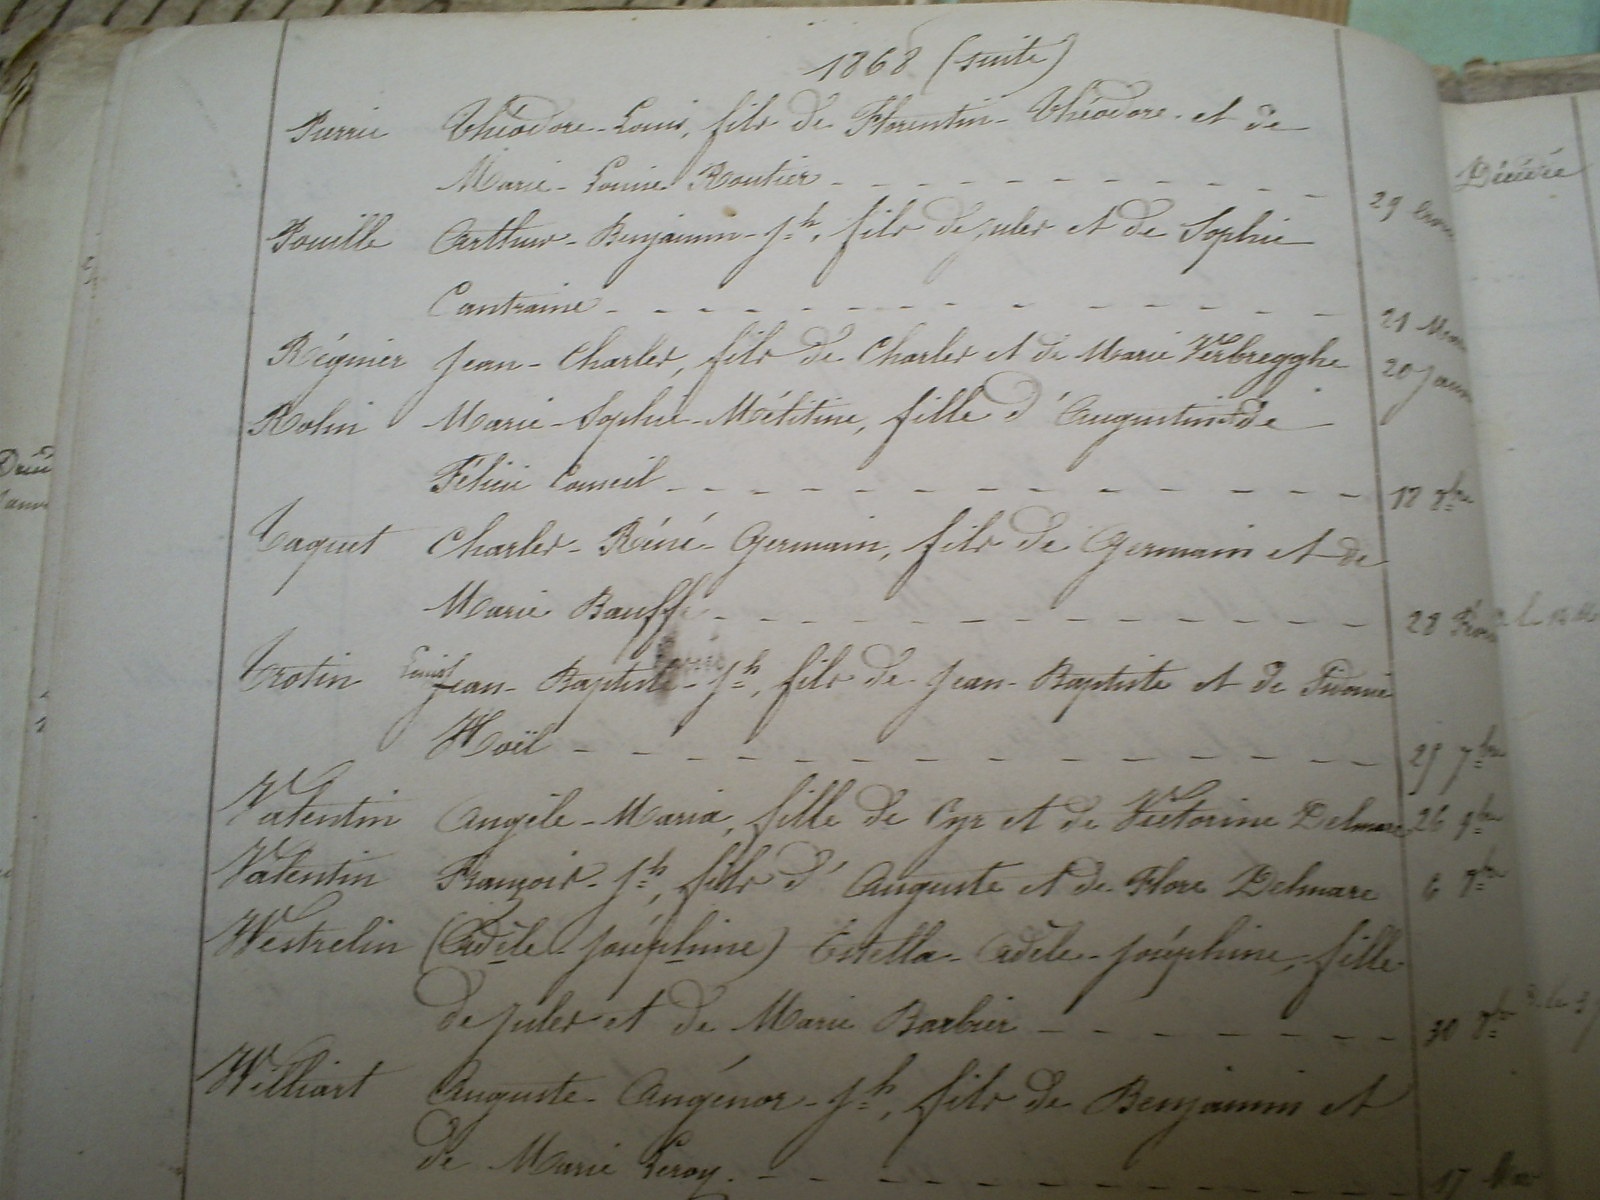 1868 (suite)
Pierrie Théodore-Louis, fils de Florentin-Théodore et de
Marie-Louise Routier 29
Pouille Arthur-Benjamin-Jh, fils de Jules et de Sophie
Cantraine 21
Régnier Jean-Charles, fils de Charles et de Marie Verbregghe 20 Janv
Rohin Marie-Sophie-Mélitine, fille d'Augustin et de
Félicie Conseil 17 8bre
Taquet Charles-Réné-Germain, fils de Germain et de
Marie Bauff 28
Trotin Louis Jean-Baptiste-Jh, fils de Jean-Baptiste et de Sidonie
Hoël 25 7bre
Valentin Angèle-Maria, fille de Cyr et de Victorine Delmare 26 9bre
Valentin François-Jh, fils d'Auguste et de Flore Delmare 6
Westrelin (Adèle-Joséphine) Estella-Adèle-Joséphine, fille
de Jules et de Marie Barbier 30 8bre
Williart Auguste-Angénor-Jh, fils de Benjamin et
de Marie Leroy. 17